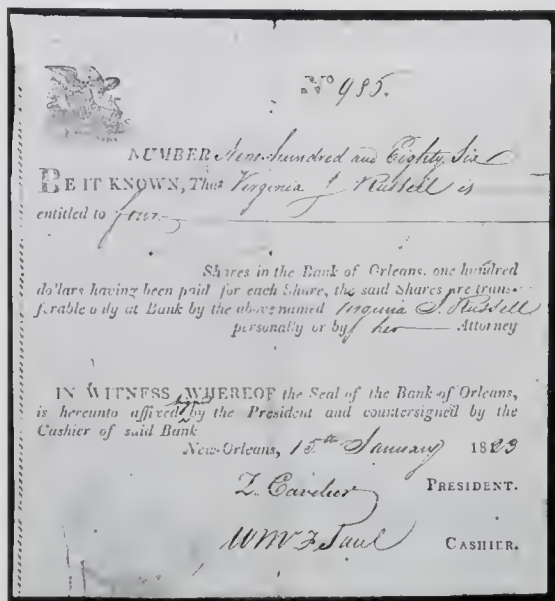 No 985.
NUMBER Nine hundred and Eighty Six
BE IT KNOWN, That Virginia J Russell is
entitled to four
Shares in the Bank of Orleans, one hundred
dollars having been paid for each Share, the said Shares are trans-
ferable only at Bank by the above named Virginia J. Russell
personally or by her Attorney
IN WITNESS WHEREOF the Seal of the Bank of Orleans,
is hereunto affixed, by the President and countersigned by the
Cashier of said Bank
New-Orleans, 15th January 1823
Z. Cavelier PRESIDENT.
Wm F Saul CASHIER.